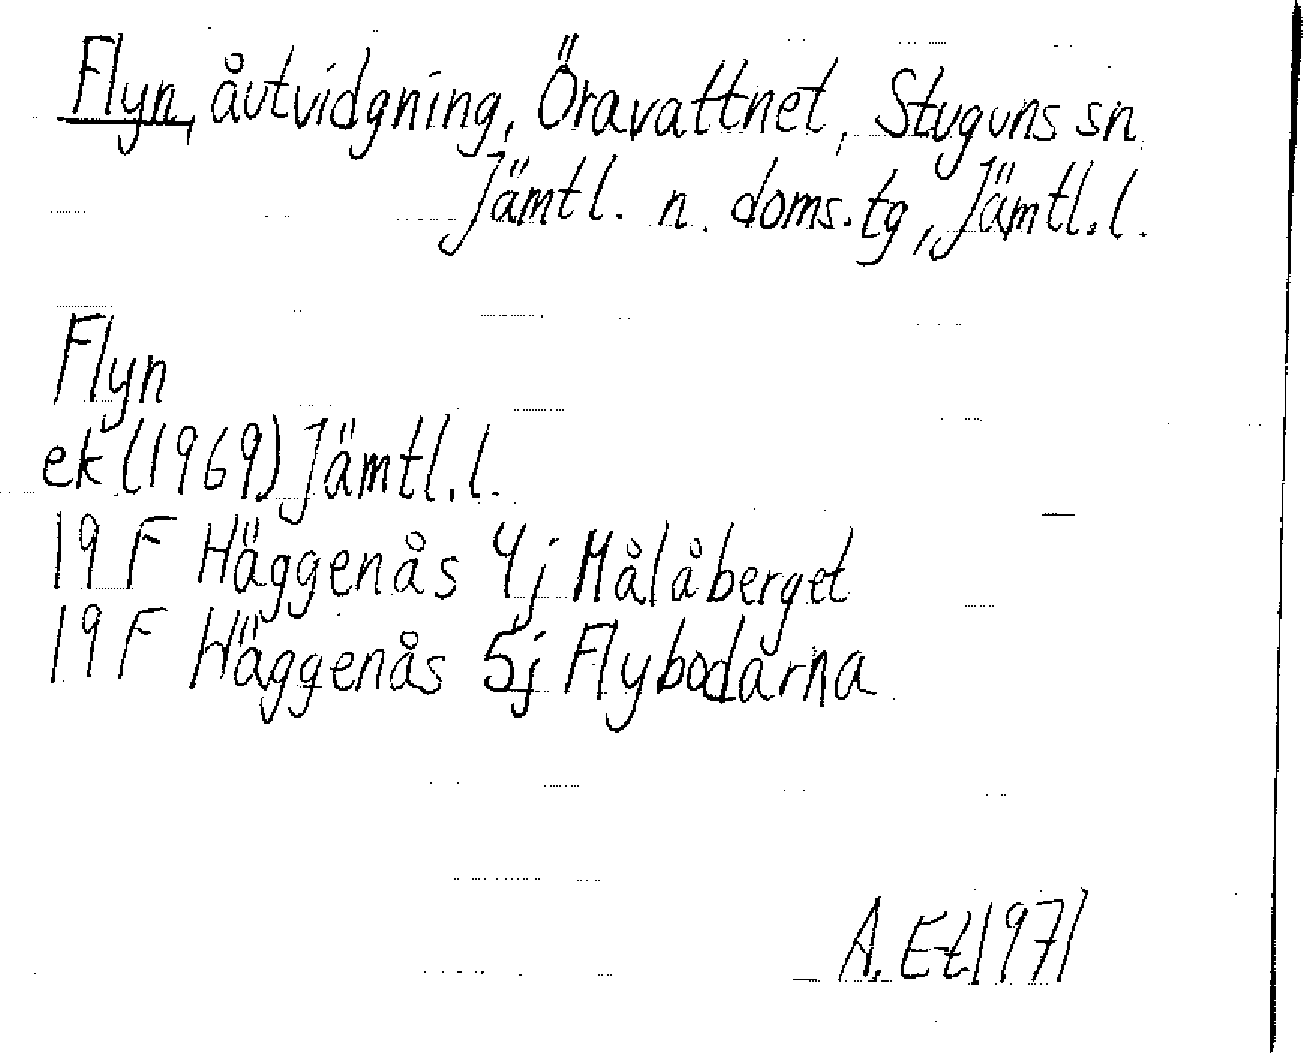 Flyn, åutvidgning, Öravattnet, Stuguns sn
Jämtl. n. doms.tg, Jämtl.l.
Flyn
ek (1969) Jämtl.l.
19 F Häggenås 4j Målåberget
19 F Häggenås 5j Flybodarna
A. Et 1971